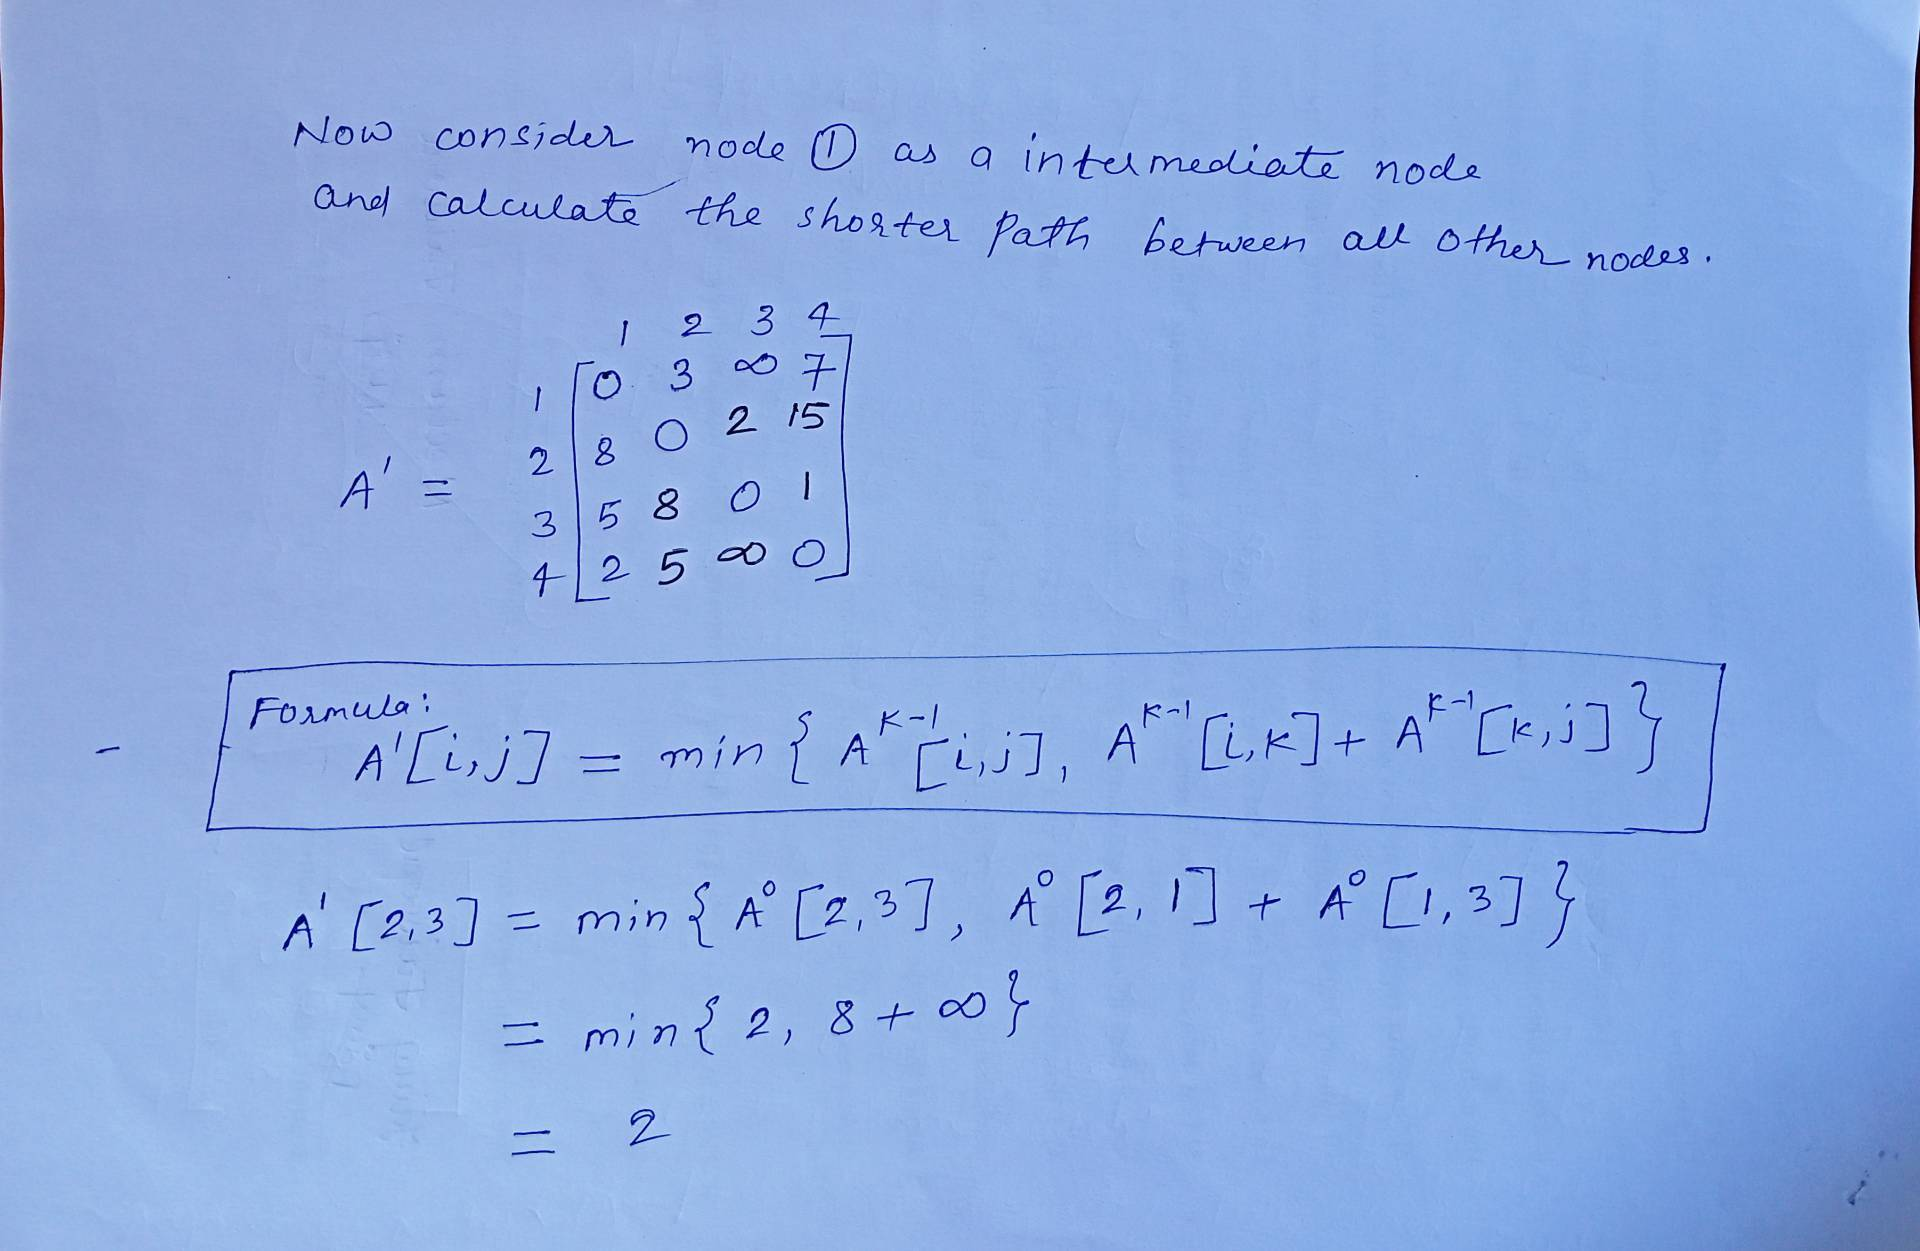 Now consider node ① as a intermediate node
and calculate the shorter path between all other nodes.
1 2 3 4
1 0 3 ∞ 7
A' = 2 8 0 2 15
3 5 8 0 1
4 2 5 ∞ 0
Formula:
A'[i,j] = min { A^(K-1)[i,j], A^(K-1)[i,K] + A^(K-1)[K,j] }
A'[2,3] = min { A⁰[2,3], A⁰[2,1] + A⁰[1,3] }
= min { 2, 8 + ∞ }
= 2